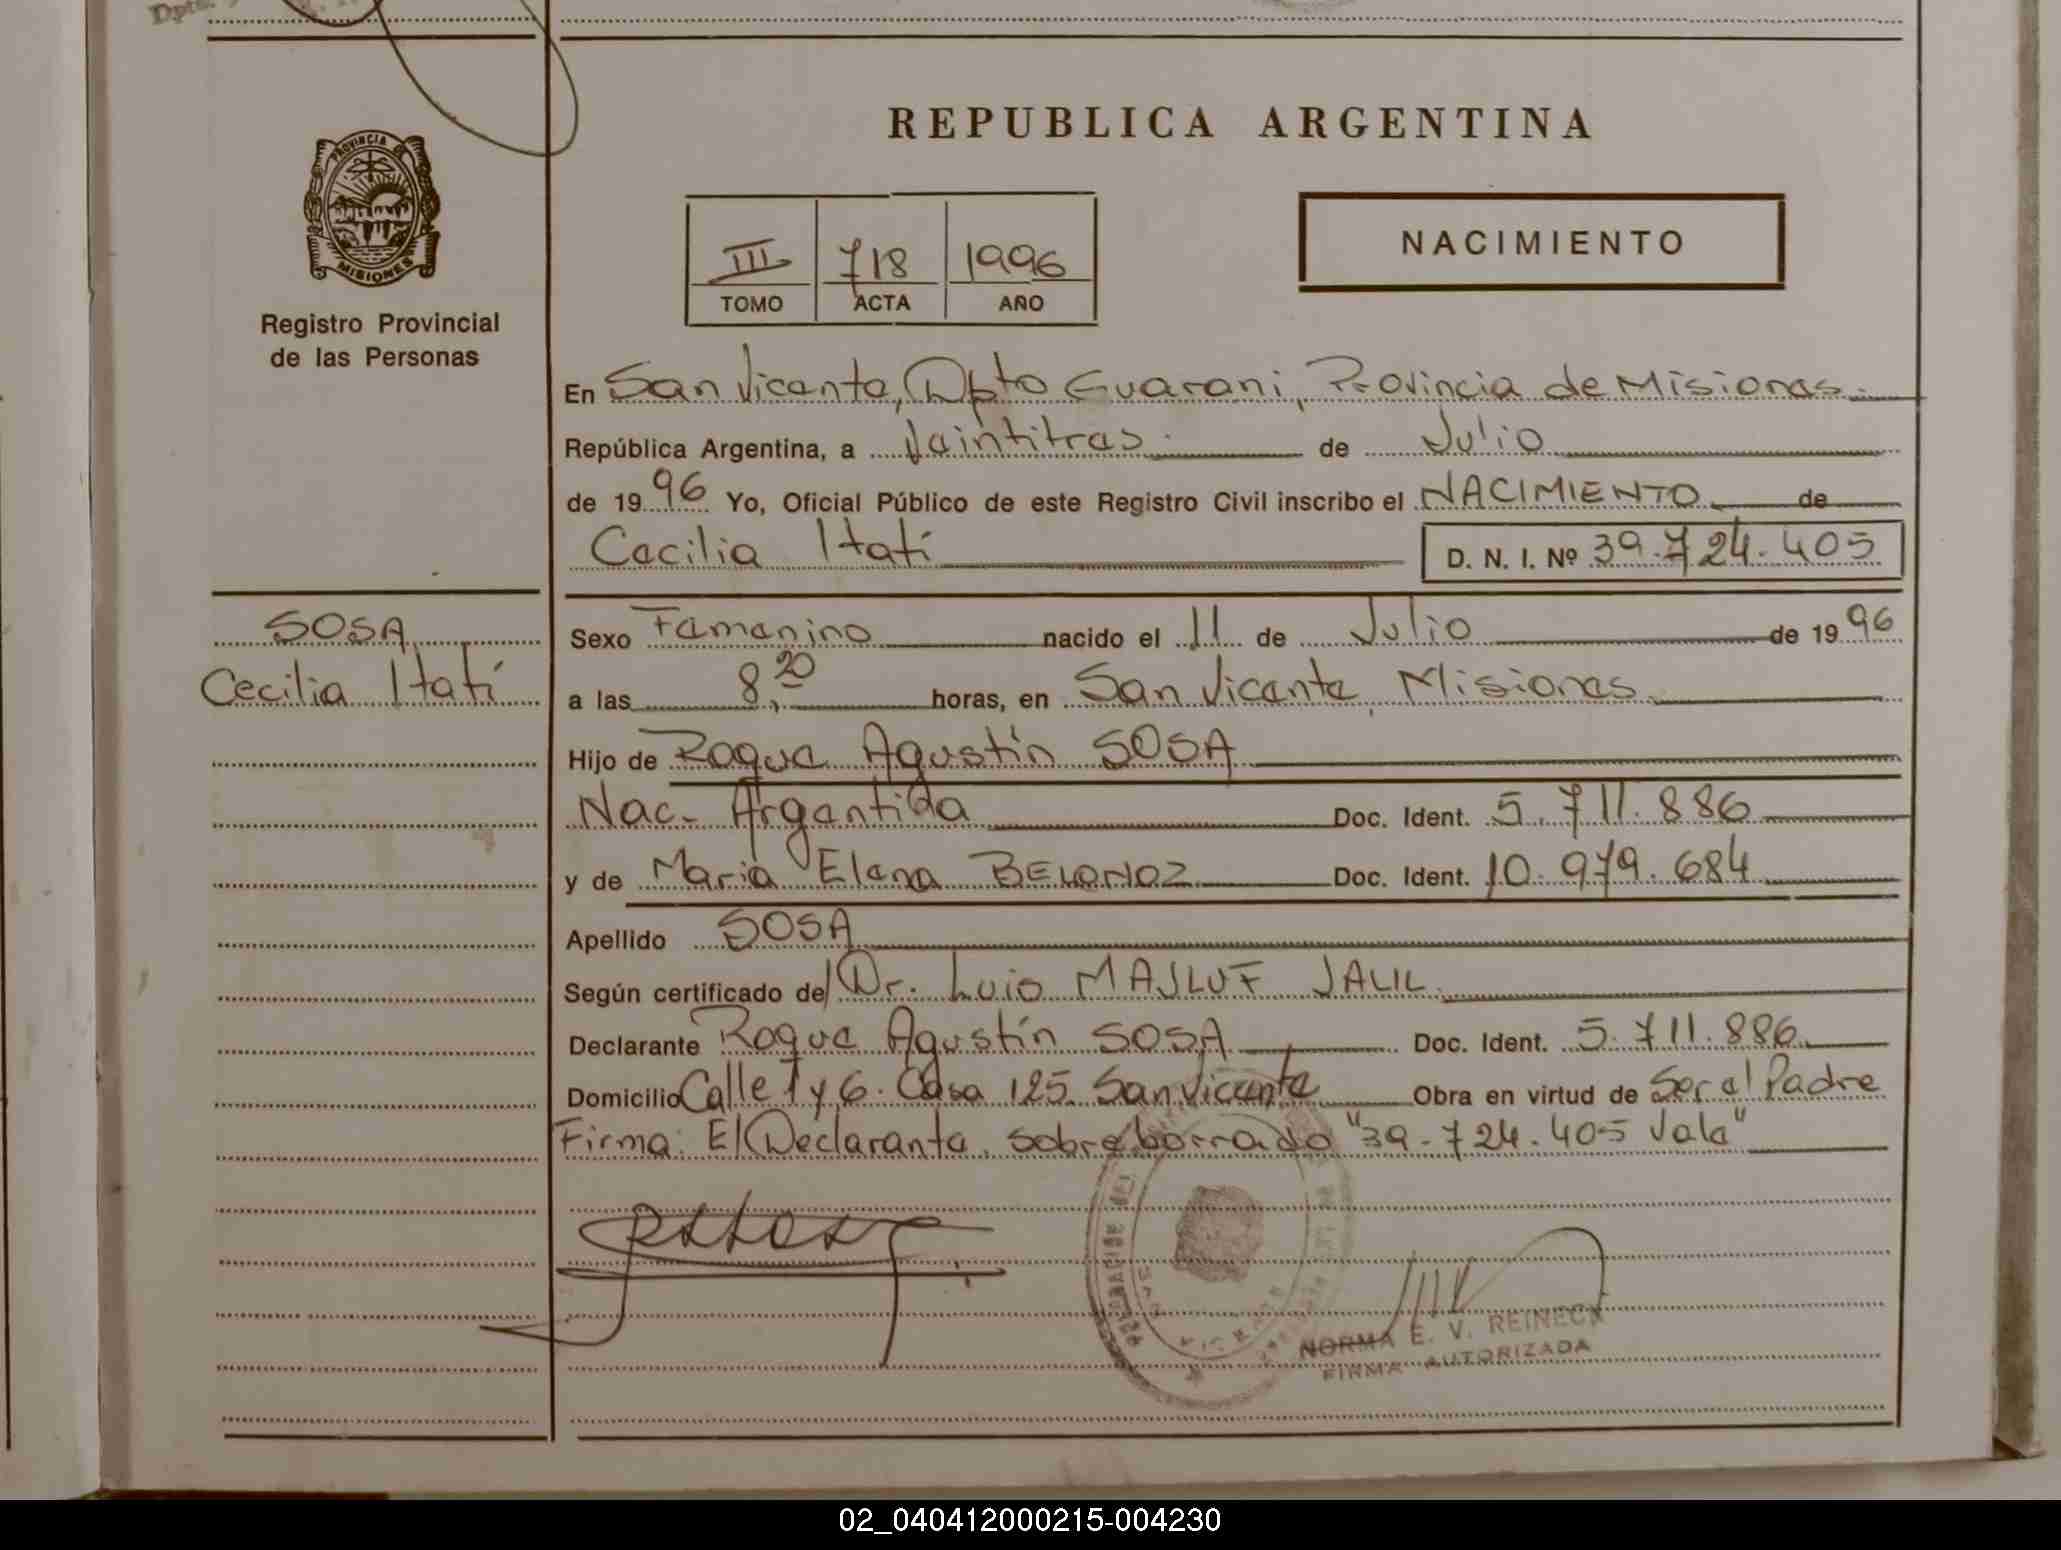 Dpto.
REPUBLICA ARGENTINA
PROVINCIA DE
MISIONES
Registro Provincial
de las Personas
III 718 1996
TOMO ACTA AÑO
NACIMIENTO
En San Vicente, Dpto Guarani, Provincia de Misiones
República Argentina, a Veintitres de Julio
de 1996 Yo, Oficial Público de este Registro Civil inscribo el NACIMIENTO de
Cecilia Itatí D. N. I. Nº 39.724.405
SOSA
Cecilia Itatí
Sexo Femenino nacido el 11 de Julio de 1996
a las 8,20 horas, en San Vicente, Misiones
Hijo de Roque Agustín SOSA
Nac. Argentina Doc. Ident. 5.711.886
y de Maria Elena Doc. Ident. 10.979.684
Apellido SOSA
Según certificado del Dr. Luis MASLUF JALIL
Declarante Roque Agustín SOSA Doc. Ident. 5.711.886
Domicilio Calle 1 y 6. Casa 125. San Vicente Obra en virtud de Ser el Padre
Firma: El Declarante. Sobreborrado "39.724.405 Vale"
NORMA E. V. REINECK
FIRMA AUTORIZADA
02_040412000215-004230